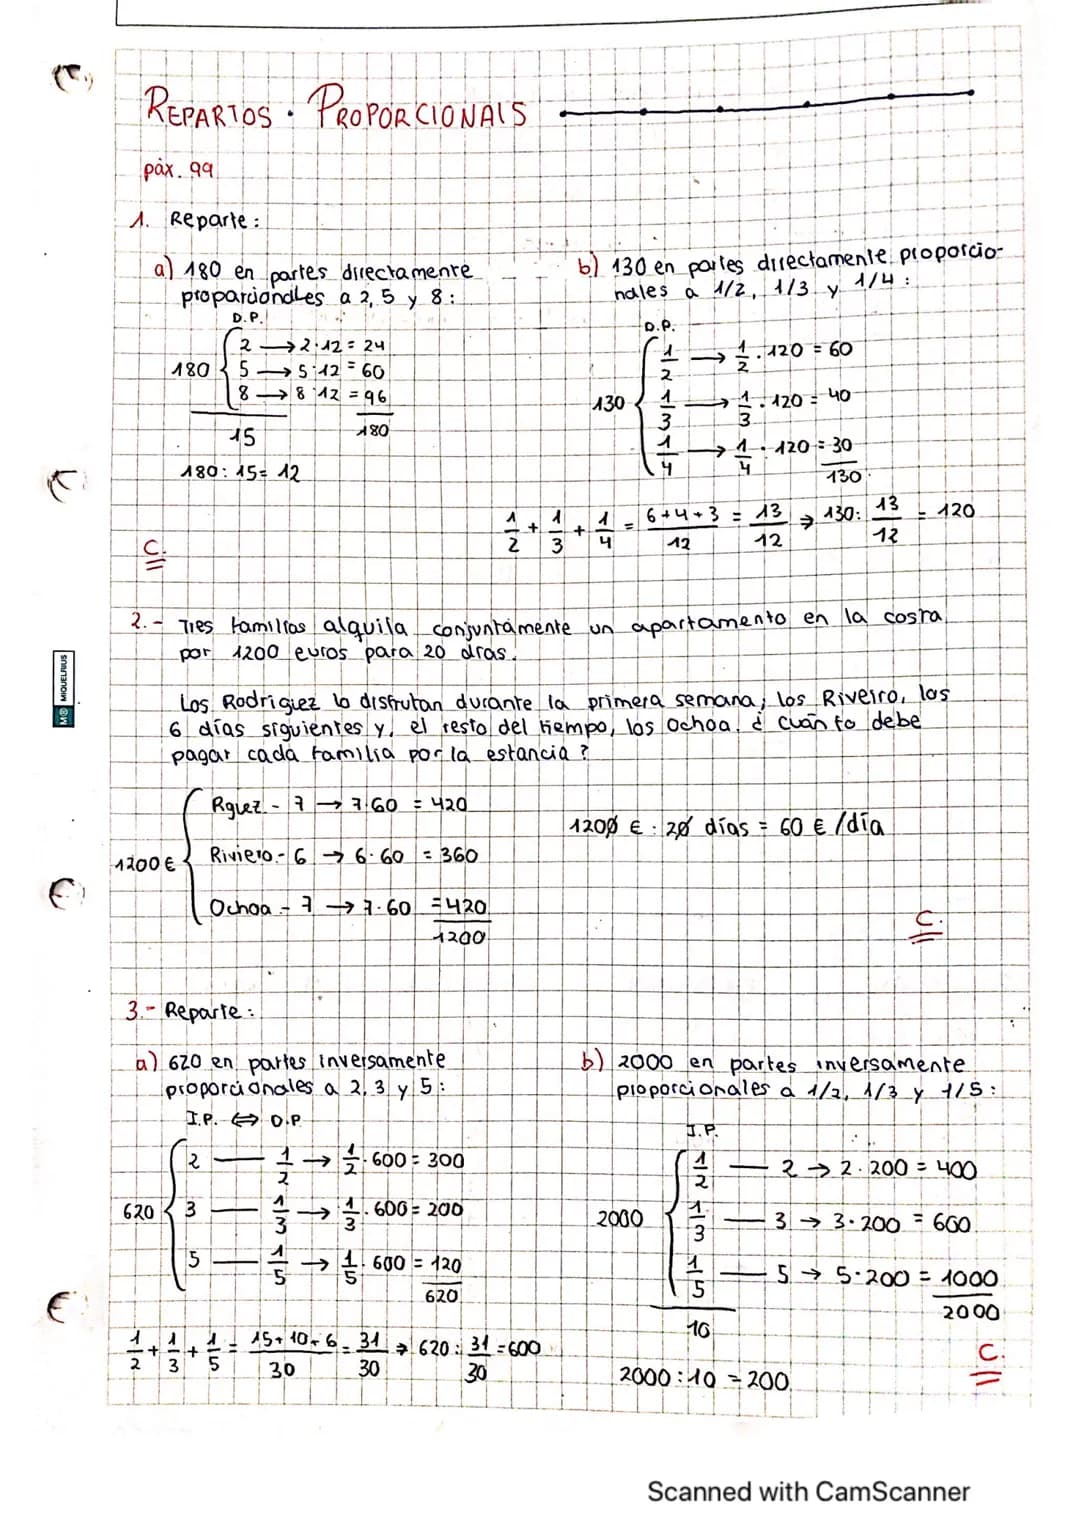 REPARTOS · PROPORCIONAIS
páx. 99
1. Reparte:
a) 180 en partes directamente
proporcionales a 2, 5 y 8:
D.P.
180
2 → 2·12 = 24
5 → 5·12 = 60
8 → 8·12 = 96
15
180
180 : 15 = 12
b) 130 en partes directamente proporcio-
nales a 1/2, 1/3 y 1/4:
D.P.
130
1/2 → 1/2 · 120 = 60
1/3 → 1/3 · 120 = 40
1/4 → 1/4 · 120 = 30
130
1/2 + 1/3 + 1/4 = 6+4+3/12 = 13/12 ⇒ 130 : 13/12 = 120
C.
2.- Tres familias alquila conjuntamente un apartamento en la costa
por 1200 euros para 20 días.
Los Rodriguez lo disfrutan durante la primera semana; los Riveiro, los
6 días siguientes y, el resto del tiempo, los Ochoa. ¿ Cuánto debe
pagar cada familia por la estancia ?
1200 €
Rguez.- 7 → 7·60 = 420
Riviero.- 6 → 6·60 = 360
Ochoa.- 7 → 7·60 = 420
1200
1200 € : 20 días = 60 € /día
C.
3.- Reparte:
a) 620 en partes inversamente
proporcionales a 2, 3 y 5:
I.P. ⇔ D.P.
620
2 — 1/2 → 1/2 · 600 = 300
3 — 1/3 → 1/3 · 600 = 200
5 — 1/5 → 1/5 · 600 = 120
620
1/2 + 1/3 + 1/5 = 15+10+6/30 = 31/30 ⇒ 620 : 31/30 = 600
b) 2000 en partes inversamente
proporcionales a 1/2, 1/3 y 1/5:
I.P.
2000
1/2 — 2 → 2·200 = 400
1/3 — 3 → 3·200 = 600
1/5 — 5 → 5·200 = 1000
10
2000
2000 : 10 = 200
C.
MIQUELRIUS
Scanned with CamScanner